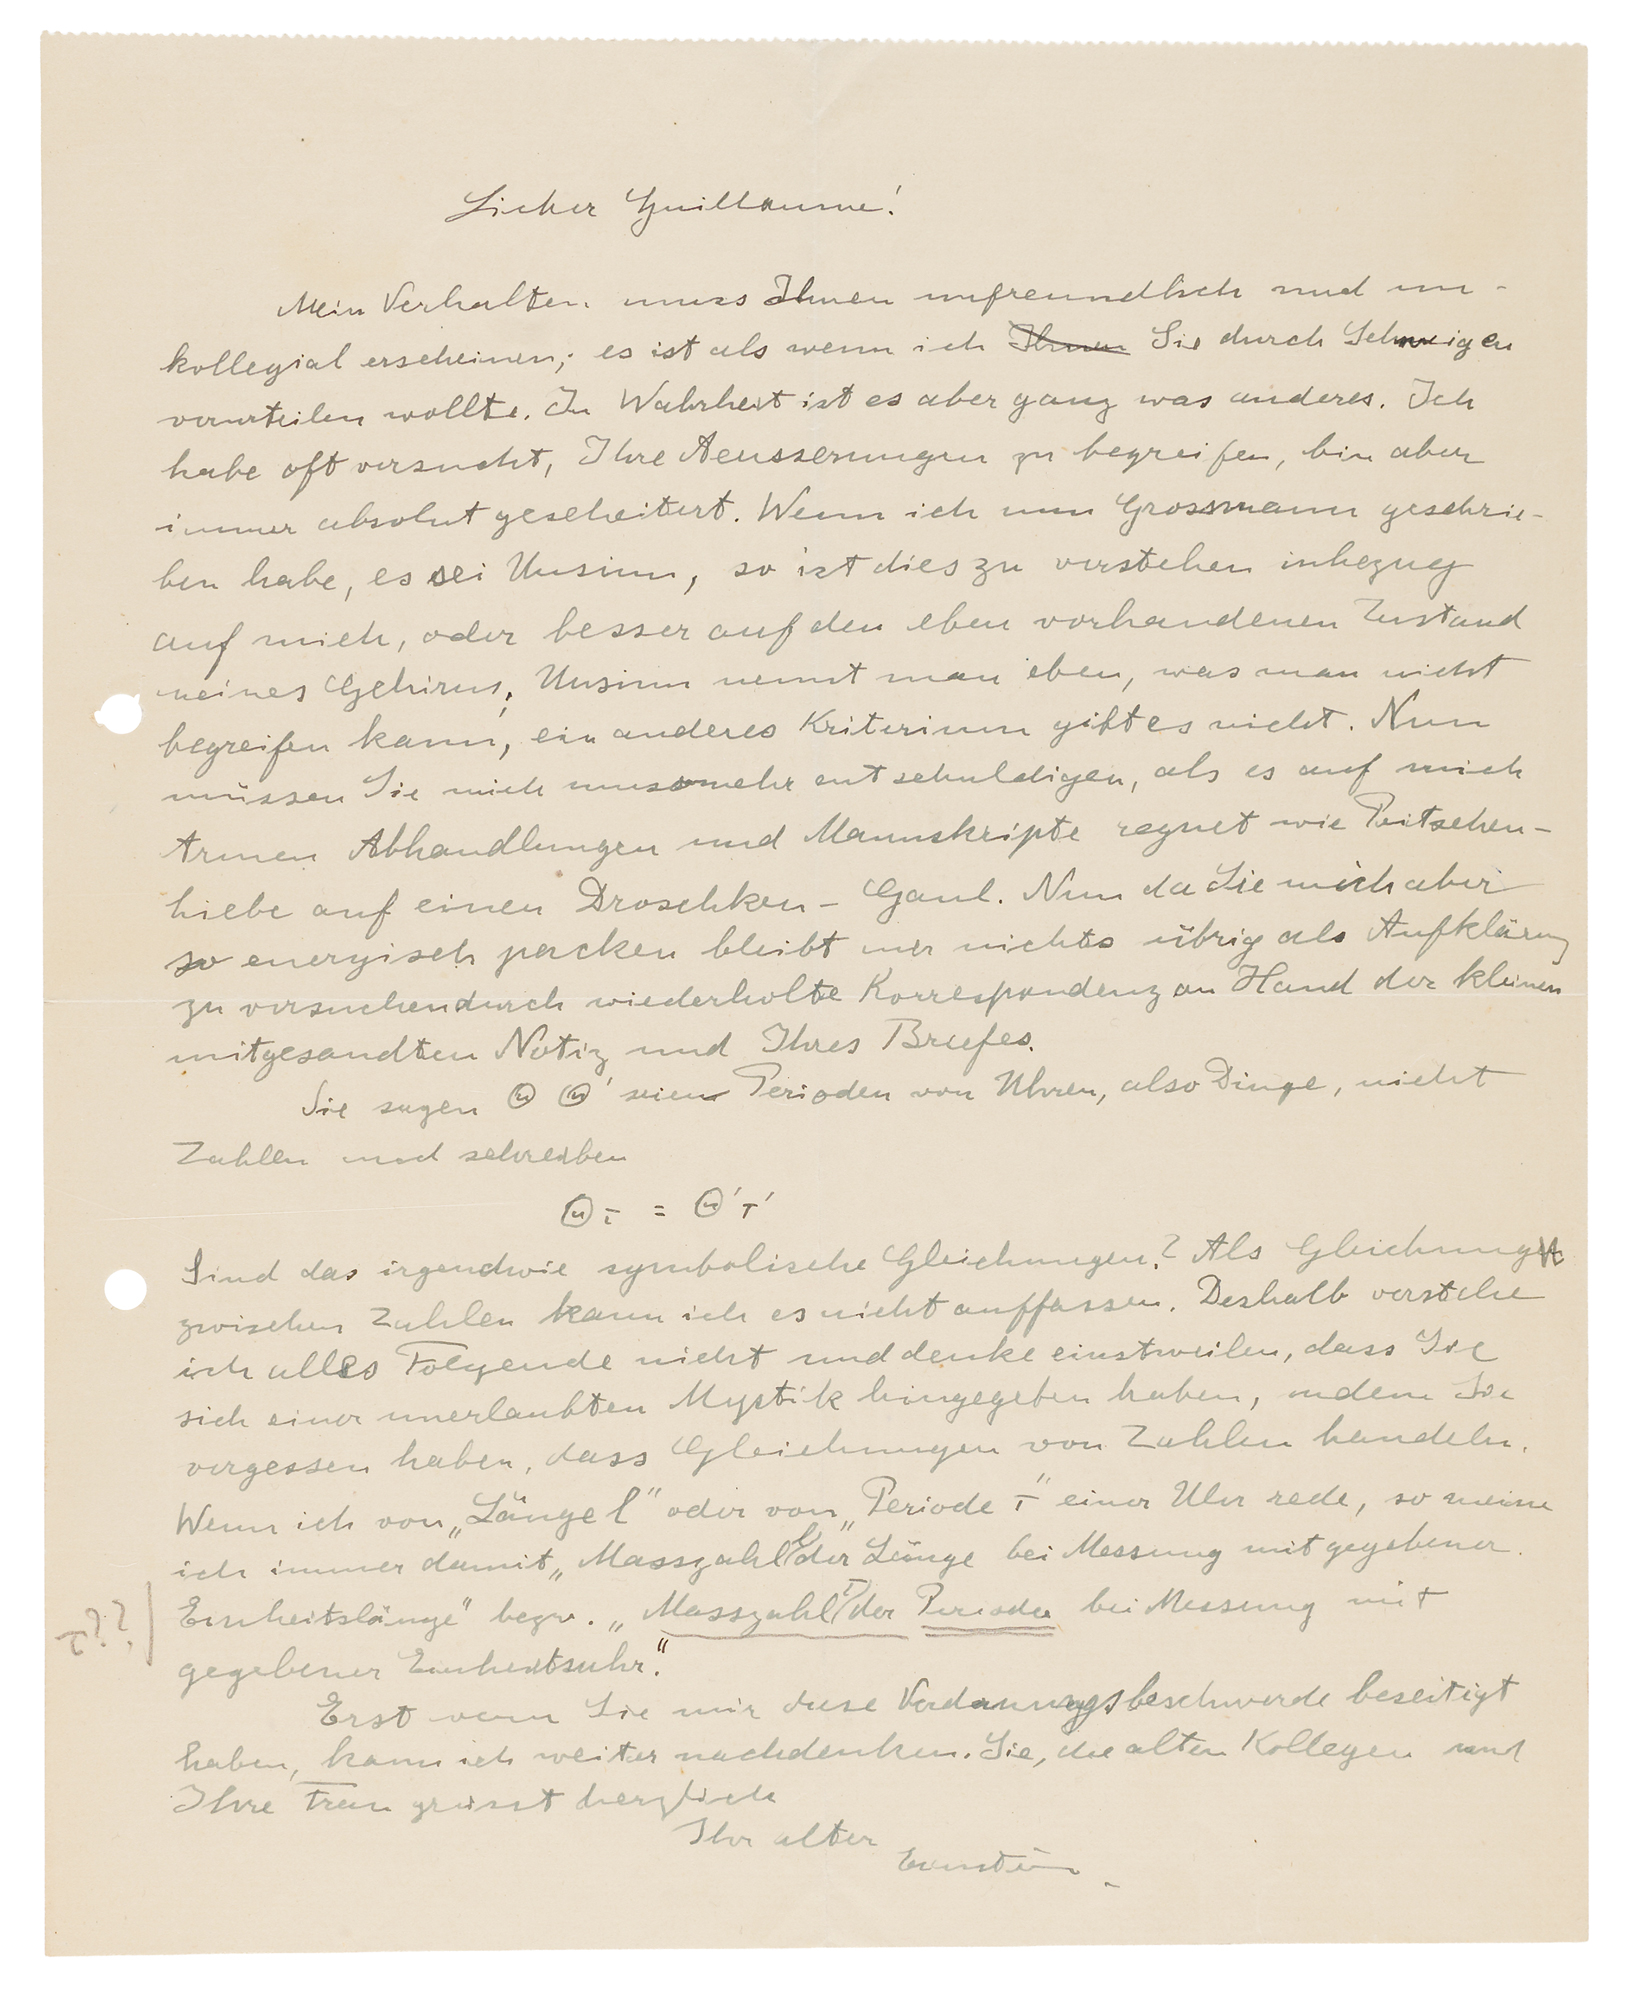 Lieber Guillaume!
Mein Verhalten muss Ihnen unfreundlich und un-
kollegial erscheinen; es ist als wenn ich Ihnen Sie durch Schweigen
verurteilen wollte. In Wahrheit ist es aber ganz was anderes. Ich
habe oft versucht, Ihre Aeusserungen zu begreifen, bin aber
immer absolut gescheitert. Wenn ich nun Grossmann geschrie-
ben habe, es sei Unsinn, so ist dies zu verstehen inbezug
auf mich, oder besser auf den eben vorhandenen Zustand
meines Gehirns; Unsinn nennt man eben, was man nicht
begreifen kann, ein anderes Kriterium gibt es nicht. Nun
müssen Sie mich umsomehr entschuldigen, als es auf mich
Armen Abhandlungen und Manuskripte regnet wie Peitschen-
hiebe auf einen Droschken-Gaul. Nun da Sie mich aber
so energisch packen bleibt mir nichts übrig als Aufklärung
zu versuchen durch wiederholte Korrespondenz an Hand der kleinen
mitgesandten Notiz und Ihres Briefes.
Sie sagen Ⓗ Ⓗ' seien Perioden von Uhren, also Dinge, nicht
Zahlen und schreiben
Ⓗτ = Ⓗ'τ'
Sind das irgendwie symbolische Gleichungen? Als Gleichungen
zwischen Zahlen kann ich es nicht auffassen. Deshalb verstehe
ich alles Folgende nicht und denke einstweilen, dass Sie
sich einer unerlaubten Mystik hingegeben haben, indem Sie
vergessen haben, dass Gleichungen von Zahlen handeln.
Wenn ich von „Länge l" oder von „Periode τ" einer Uhr rede, so meine
ich immer damit „Masszahl l der Länge bei Messung mit gegebener
Einheitslänge" bezw. „Masszahl τ der Periode bei Messung mit
τ??
gegebener Einheitsuhr."
Erst wenn Sie mir diese Verdauungsbeschwerde beseitigt
haben, kann ich weiter nachdenken. Sie, die alten Kollegen und
Ihre Frau grüsst herzlich
Ihr alter
Einstein.